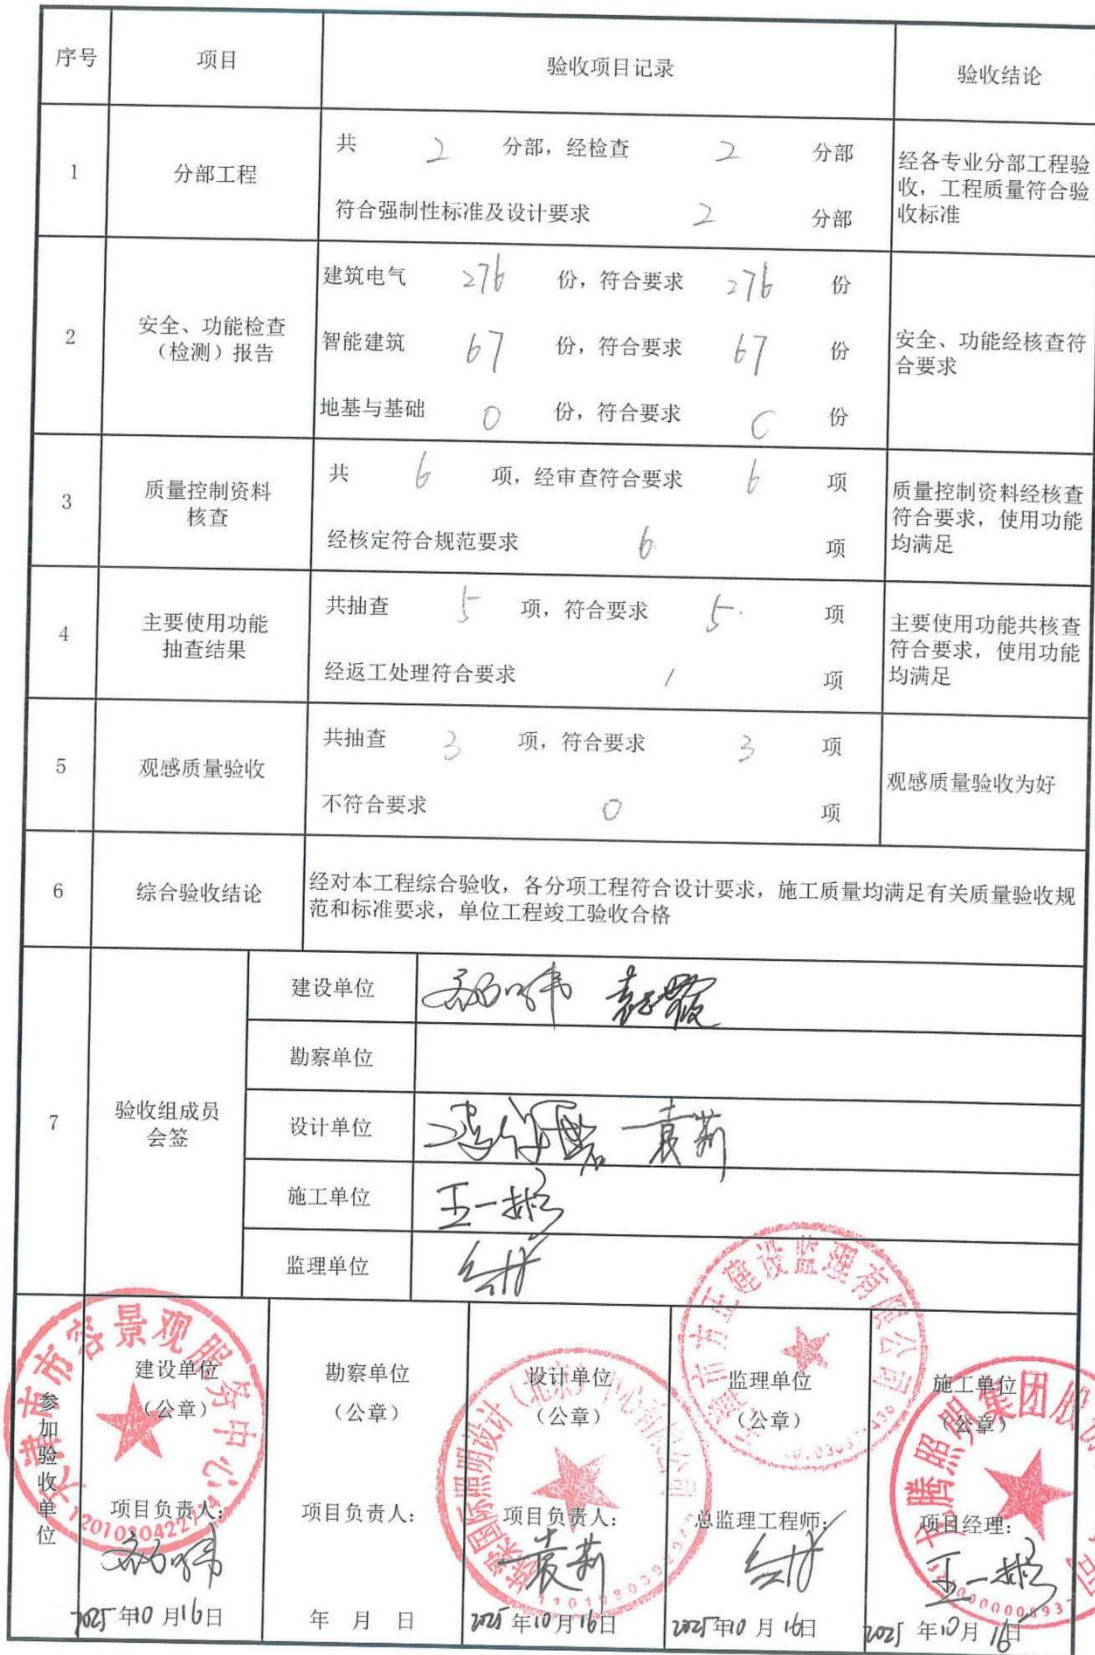 序号 项目 验收项目记录 验收结论
1 分部工程
共 2 分部，经检查 2 分部
符合强制性标准及设计要求 2 分部
经各专业分部工程验
收，工程质量符合验
收标准
2
安全、功能检查
（检测）报告
建筑电气 276 份，符合要求 276 份
智能建筑 67 份，符合要求 67 份
地基与基础 0 份，符合要求 0 份
安全、功能经核查符
合要求
3
质量控制资料
核查
共 6 项，经审查符合要求 6 项
经核定符合规范要求 6 项
质量控制资料经核查
符合要求，使用功能
均满足
4
主要使用功能
抽查结果
共抽查 5 项，符合要求 5 项
经返工处理符合要求 / 项
主要使用功能共核查
符合要求，使用功能
均满足
5 观感质量验收
共抽查 3 项，符合要求 3 项
不符合要求 0 项
观感质量验收为好
6 综合验收结论
经对本工程综合验收，各分项工程符合设计要求，施工质量均满足有关质量验收规
范和标准要求，单位工程竣工验收合格
7
验收组成员
会签
建设单位
勘察单位
设计单位 袁莉
施工单位 王一彬
监理单位
参加验收单位
天津市市容景观服务中心
建设单位
（公章）
项目负责人：
2025年10月16日
勘察单位
（公章）
项目负责人：
年 月 日
设计单位
（公章）
项目负责人：
袁莉
2025年10月16日
方正建设监理有限公司
监理单位
（公章）
总监理工程师：
2025年10月16日
腾照明集团股
施工单位
（公章）
项目经理：
王一彬
2025年10月16日